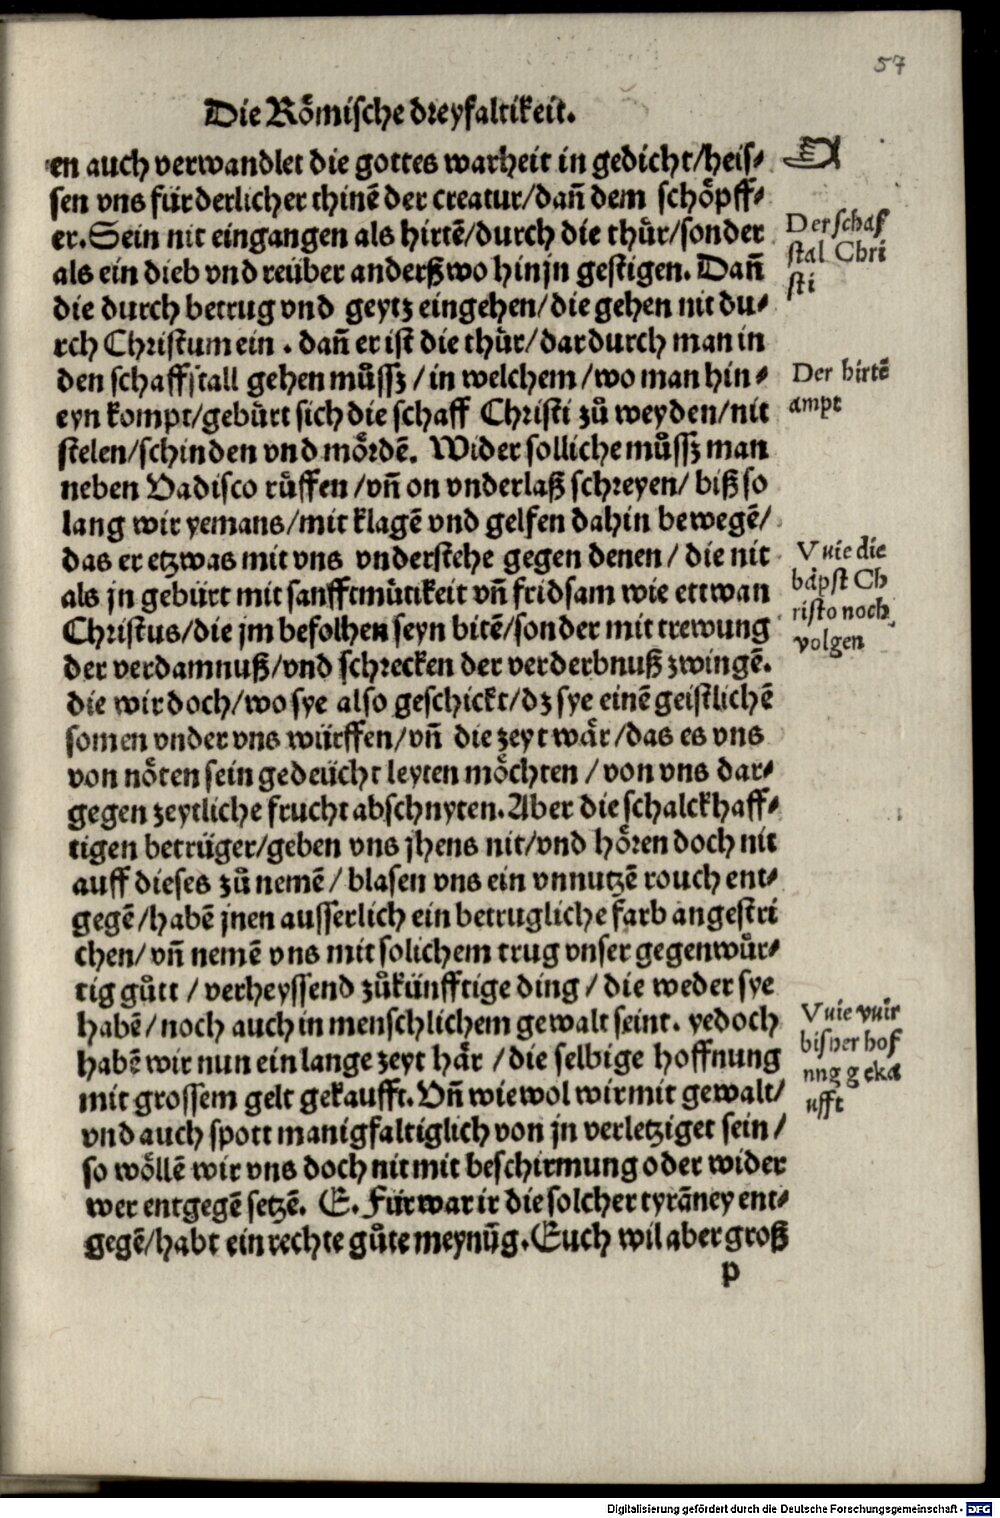 57
Die Roͤmische dreyfaltikeit.
en auch verwandlet die gottes warheit in gedicht/heis⸗
sen vns fürderlicher thinē der creatur/dañ dem schoͤpff⸗
er. Sein nit eingangen als hirtē/durch die thuͤr/sonder
als ein dieb vnd reüber anderßwo hinjn gestigen. Dañ
die durch betrug vnd geytz eingehen/die gehen nit du⸗
rch Christum ein . dañ er ist die thuͤr/dardurch man in
den schaffstall gehen muͦssz/in welchem/wo man hin⸗
eyn kompt/gebürt sich die schaff Christi zuͦ weyden/nit
stelen/schinden vnd moͤrdē. Wider solliche muͦssz man
neben Vadisco ruͤffen/vñ on vnderlaß schreyen/ biß so
lang wir yemans/mit klagē vnd gelfen dahin bewegē/
das er etzwas mit vns vnderstehe gegen denen/ die nit
als jn gebürt mit sanfftmuͤtikeit vñ fridsam wie ettwan
Christus/die jm befolhen seyn bitē/sonder mit trewung
der verdamnuß/vnd schrecken der verderbnuß zwingē.
die wir doch/wo sye also geschickt/dz sye einē geistlichē
somen vnder vns würffen/vñ die zeyt waͤr/das es vns
von noͤten sein gedeücht leyten moͤchten/von vns dar⸗
gegen zeytliche frucht abschnyten. Aber die schalckhaff⸗
tigen betrüger/geben vns jhens nit/vnd hoͤren doch nit
auff dieses zuͦ nemē/ blasen vns ein vnnutzē rouch ent⸗
gegē/habē jnen ausserlich ein betrugliche farb angestri
chen/ vñ nemē vns mit solichem trug vnser gegenwuͤr⸗
tig guͦtt/verheyssend zuͦkünfftige ding/ die weder sye
habē/noch auch in menschlichem gewalt seint. yedoch
habē wir nun ein lange zeyt haͤr /die selbige hoffnung
mit grossem gelt gekaufft. Vñ wiewol wir mit gewalt/
vnd auch spott manigfaltiglich von jn verletziget sein/
so woͤllē wir vns doch nit mit beschirmung oder wider
wer entgegē setzē. E. Fürwar ir die solcher tyrāney ent⸗
gegē/habt ein rechte guͦte meynūg. Euch wil aber groß
p
Der schaf
stal Chri
sti
Der hirtē
ampt
Vuie die
baͤpst Ch
risto noch
volgen
Vuie vuir
bisher hof
nng gekā
ufft
Digitalisierung gefördert durch die Deutsche Forschungsgemeinschaft - DFG